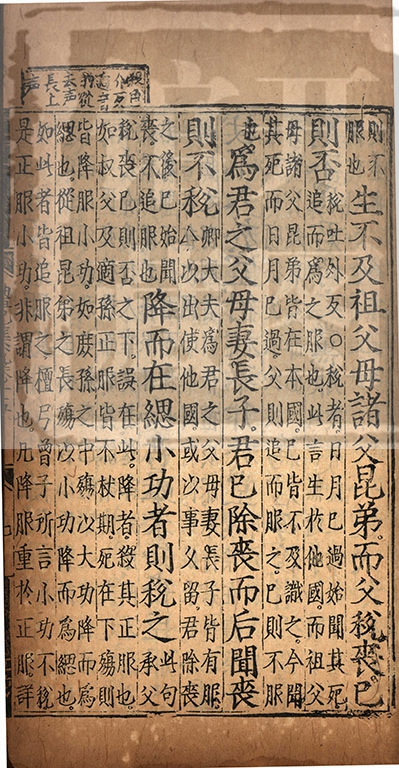 殺色
介反
適音
的從
去聲
長上
聲
則不
服也
生不及祖父母諸父昆弟而父稅喪已
則否
稅吐外反○稅者日月已過始聞其死
追而為之服也此言生於他國而祖父
母諸父昆弟皆在本國已皆不及識之今聞
其死而日月已過父則追而服之已則不服
也
為君之父母妻長子君已除喪而后聞喪
則不稅
卿大夫為君之父母妻長子皆有服
今以出使他國或以事久留君除喪
之後已始聞
喪不追服也
降而在緦小功者則稅之
此句
承父
稅喪已則否之下誤在此降者殺其正服也
如叔父及適孫正服皆不杖期死在下殤則
皆降服小功如庶孫之中殤以大功降而為
緦也從祖昆弟之長殤以小功降而為緦也
如此者皆追服之檀弓曾子所言小功不稅
是正服小功非謂降也凡降服重於正服詳